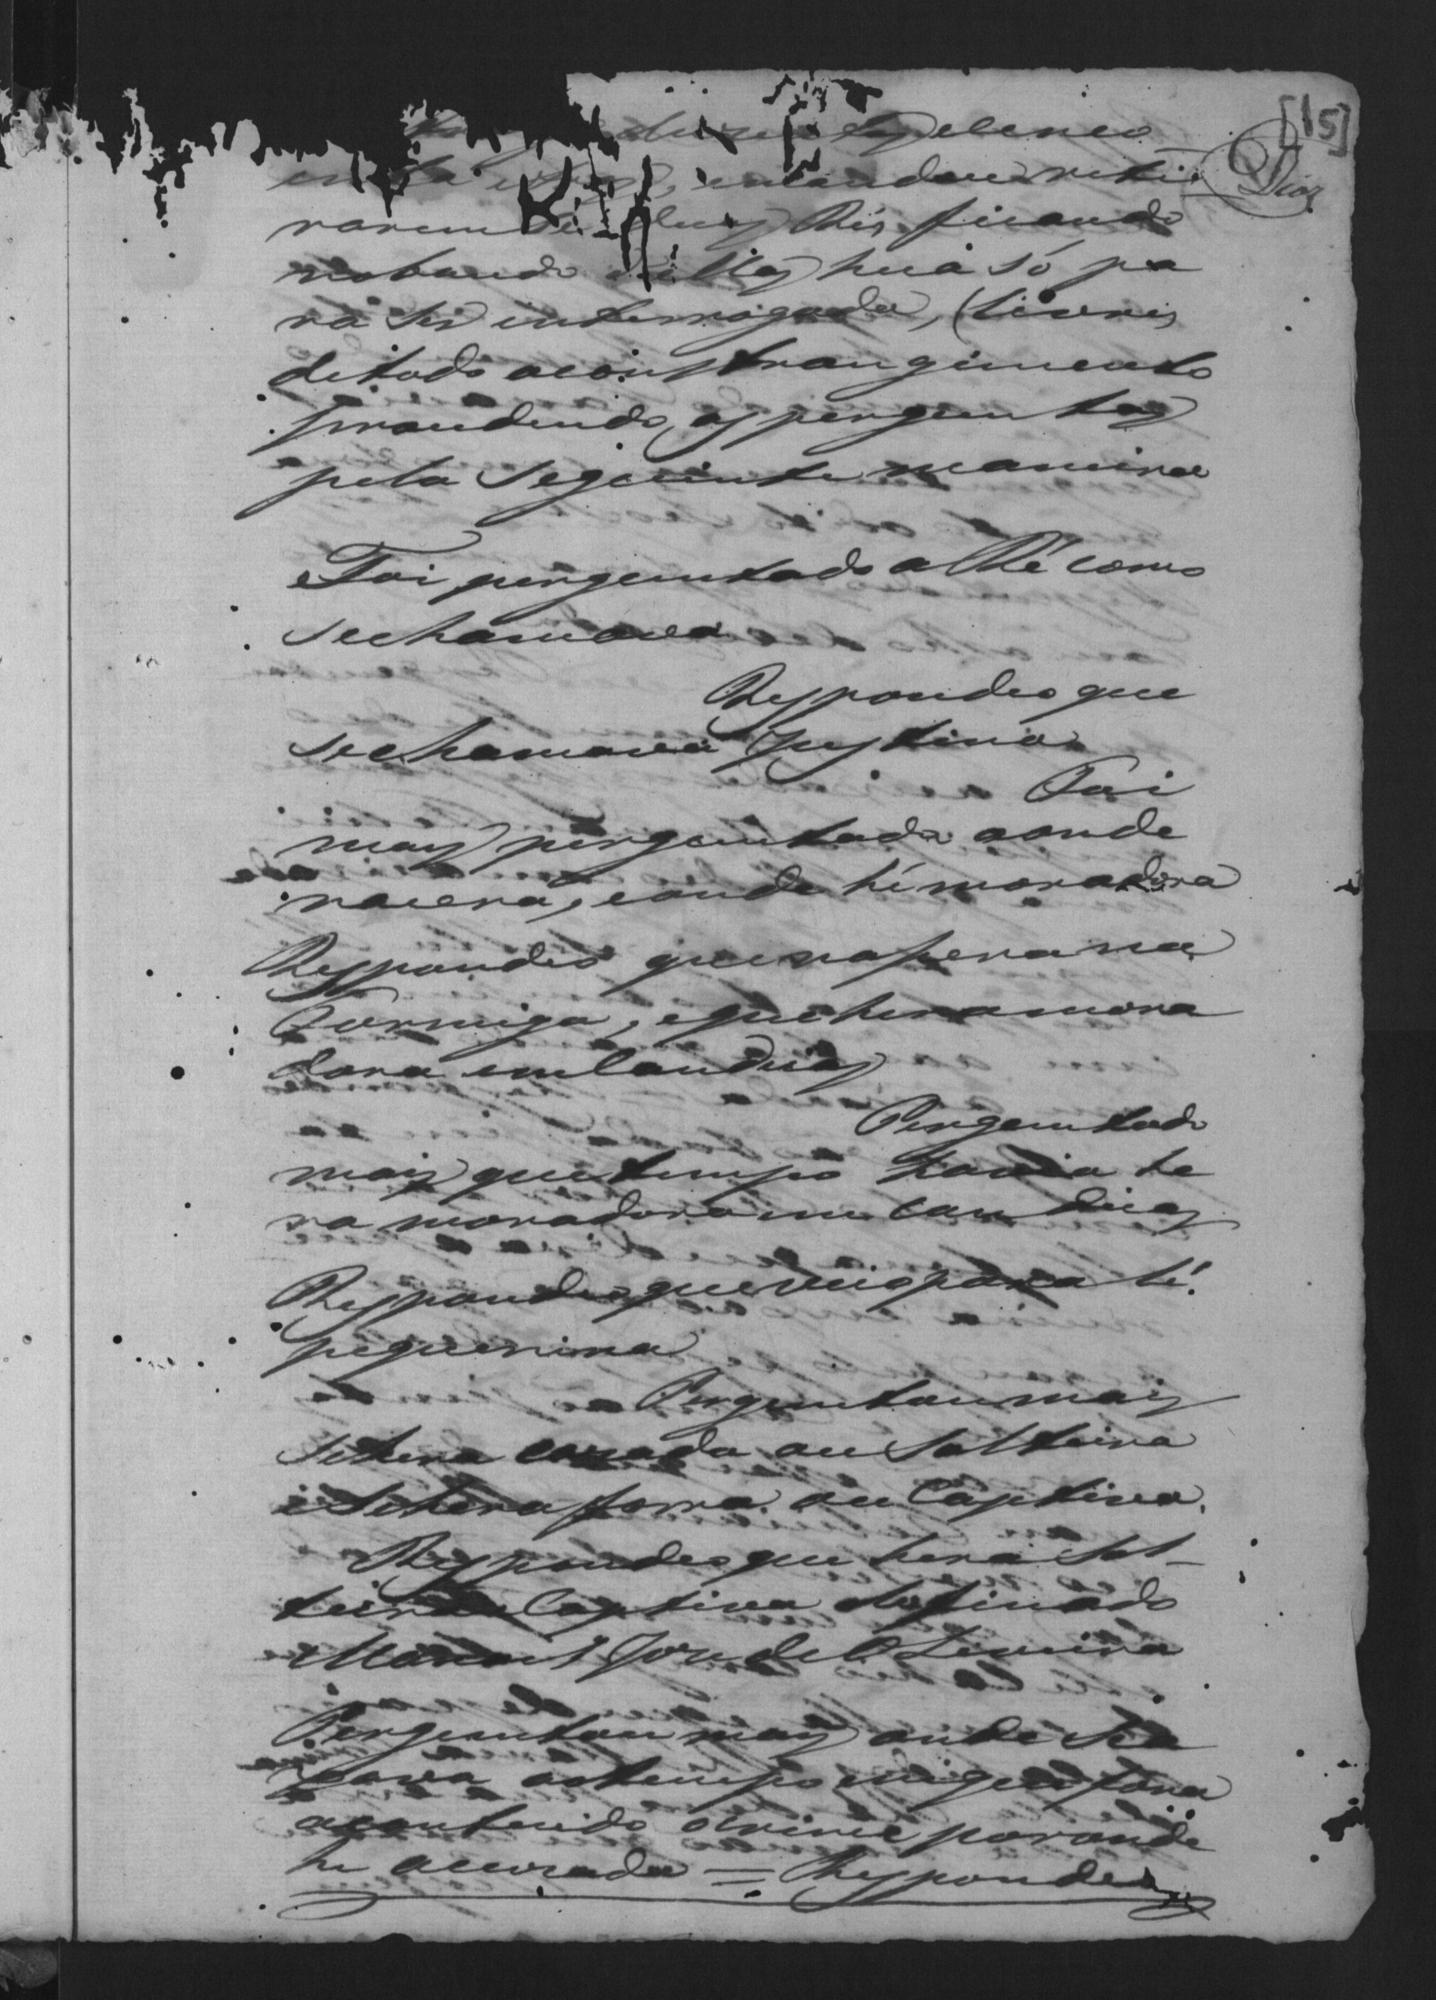 [15]
Dias
rarem Reis ficando
hua só pa
ra ser interrogada, livres
de todo aconstrangimento
fazendo as perguntas
pela seguinte maneira
Foi perguntado a Ré como
se chamava
Respondeo que
se chamava Justina
Foi
mais perguntada aonde
nacera, e onde hé moradora
Respondeo que naserana
Formiga, e que hera mora
dora em Candeas
Perguntado
mais que tempo havia he
ra moradora em Candeas
Respondeo que veio para lé
piquinina
Perguntou mais
se hera cazada ou solteira
e se hera forra ou Captiva.
Respondeo que hera sol
teira e Captiva do finado
Manoel Joze de Oliveira
Perguntou mais onde sea
xava ao tempo em que fora
acontecido o crime por onde
he acuzada = Respondeo